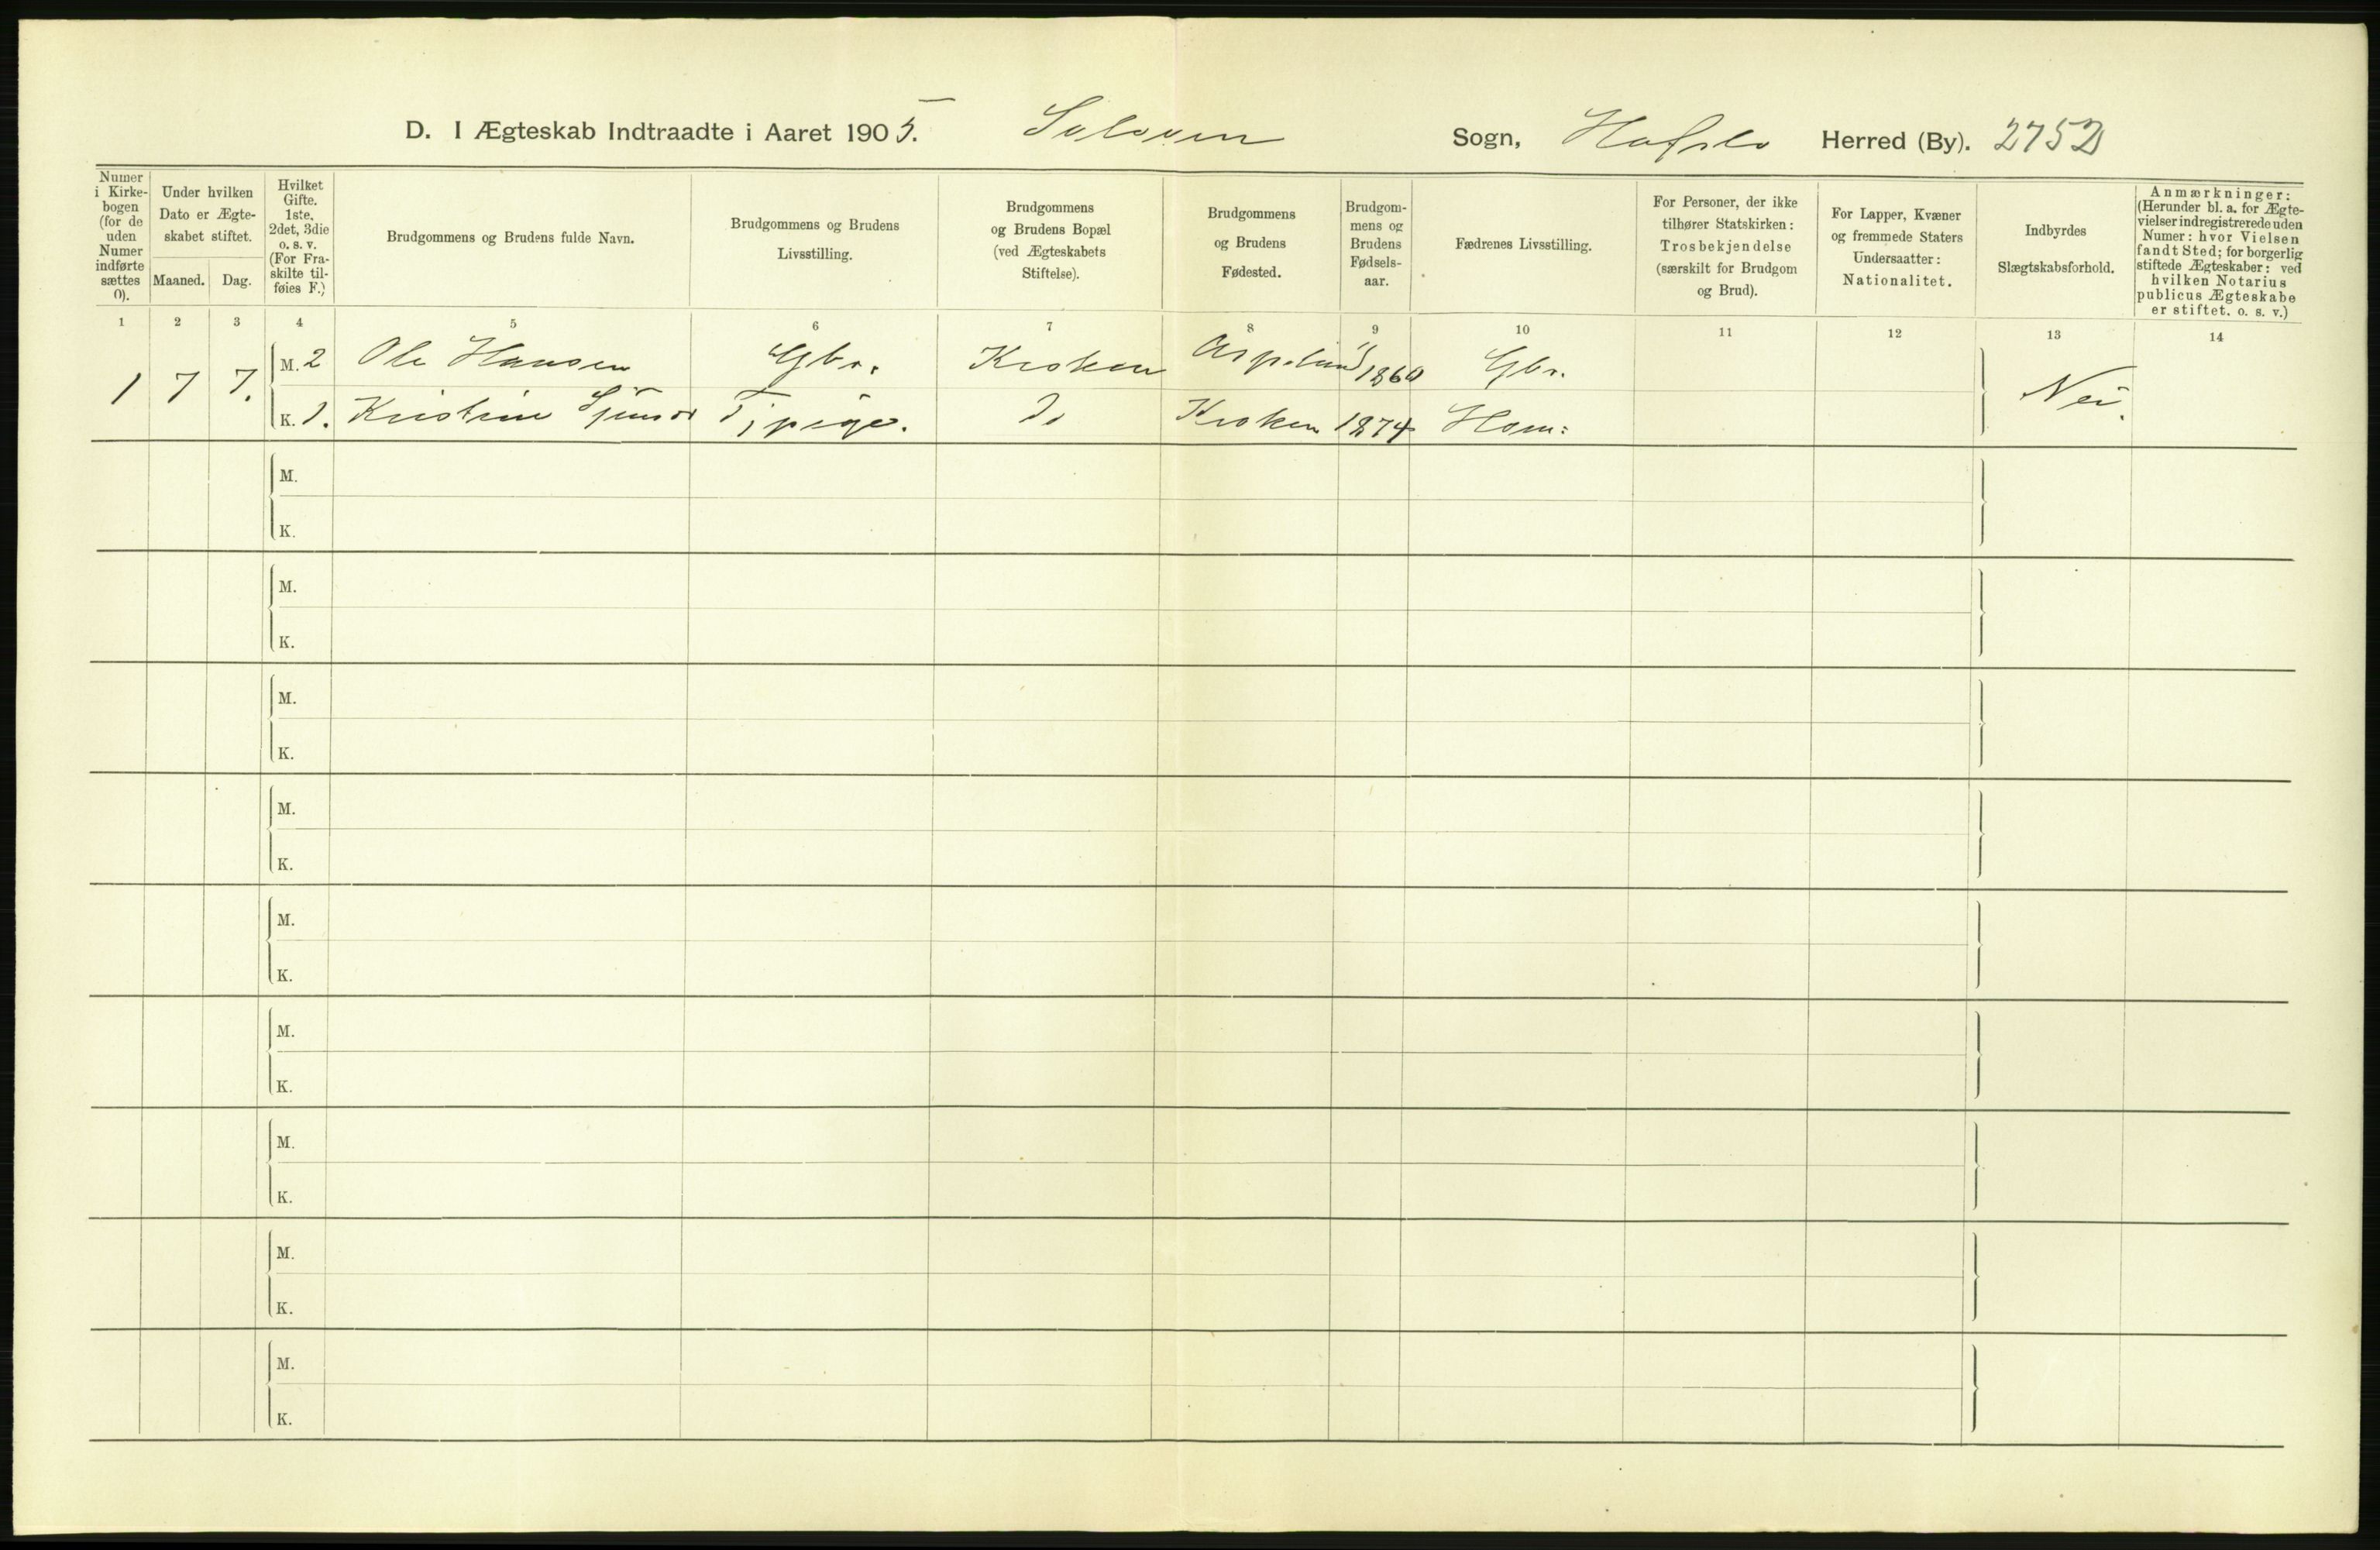 D. I Ægteskab Indtraadte i Aaret 1905. Solvorn Sogn, Hafslo Herred (By). 2752
Numer i Kirkebogen (for de uden Numer indførte sættes 0).
Under hvilken Dato er Ægteskabet stiftet.
Maaned. Dag.
Hvilket Gifte. 1ste, 2det, 3die o. s. v. (For Fraskilte tilføies F.)
Brudgommens og Brudens fulde Navn.
Brudgommens og Brudens Livsstilling.
Brudgommens og Brudens Bopæl (ved Ægteskabets Stiftelse).
Brudgommens og Brudens Fødested.
Brudgommens og Brudens Fødselsaar.
Fædrenes Livsstilling.
For Personer, der ikke tilhører Statskirken: Trosbekjendelse (særskilt for Brudgom og Brud).
For Lapper, Kvæner og fremmede Staters Undersaatter: Nationalitet.
Indbyrdes Slægtskabsforhold.
Anmærkninger: (Herunder bl. a. for Ægtevielser indregistrerede uden Numer: hvor Vielsen fandt Sted; for borgerlig stiftede Ægteskaber: ved hvilken Notarius publicus Ægteskabe er stiftet. o. s. v.)
1 2 3 4 5 6 7 8 9 10 11 12 13 14
1 7 7. M. 2 Ole Hansen Gbr. Kroken 1860 Gbr. Nei.
K. 1. Kristine Tj pige. Do Kroken 1874 Hom:
M.
K.
M.
K.
M.
K.
M.
K.
M.
K.
M.
K.
M.
K.
M.
K.
M.
K.